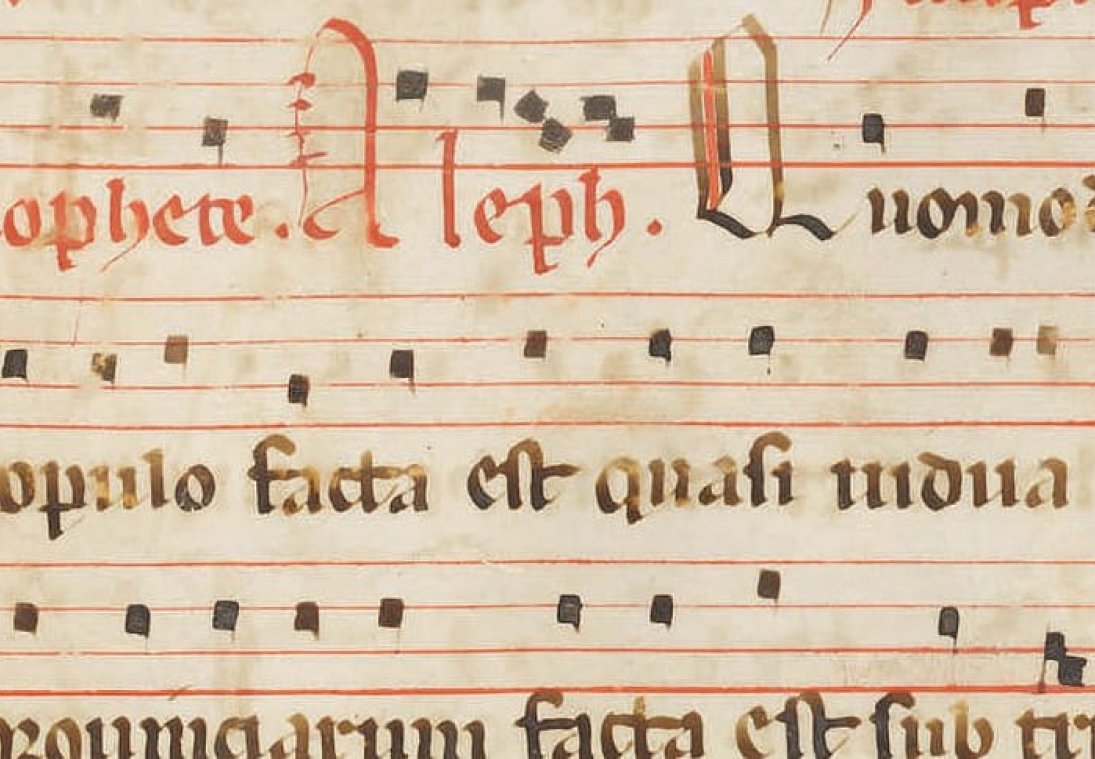 ophete. Aleph. Quomod
opulo facta est quasi uidua
rouinciarum facta est sub tri